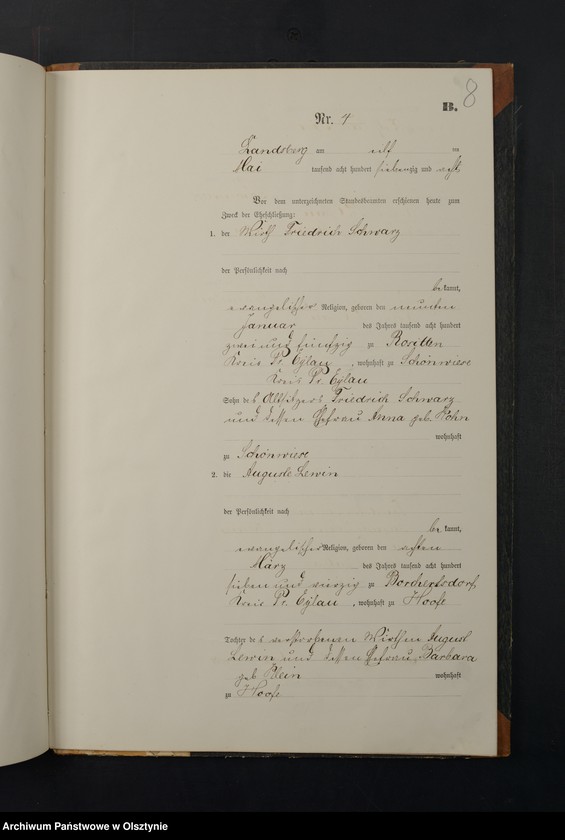 8
B.
Nr. 4
Landsberg am elf ten
Mai tausend acht hundert siebenzig und acht
Vor dem unterzeichneten Standesbeamten erschienen heute zum
Zweck der Eheschließung:
1. der Wirth Friedrich Schwarz
der Persönlichkeit nach
be kannt,
evangelischer Religion, geboren den neunten
Januar des Jahres tausend acht hundert
zwei und fünfzig zu Rositten
Kreis Pr. Eylau, wohnhaft zu Schönwiese
Kreis Pr. Eylau
Sohn des Altsitzers Friedrich Schwarz
und dessen Ehefrau Anna geb. Höhn
wohnhaft
zu Schönwiese
2. die Auguste Lewin
der Persönlichkeit nach
be kannt,
evangelischer Religion, geboren den achten
März des Jahres tausend acht hundert
sieben und vierzig zu Borchertsdorf,
Kreis Pr. Eylau, wohnhaft zu Hoofe
Tochter des verstorbenen Wirthen August
Lewin und dessen Ehefrau Barbara
geb. Plein wohnhaft
zu Hoofe
Archiwum Państwowe w Olsztynie